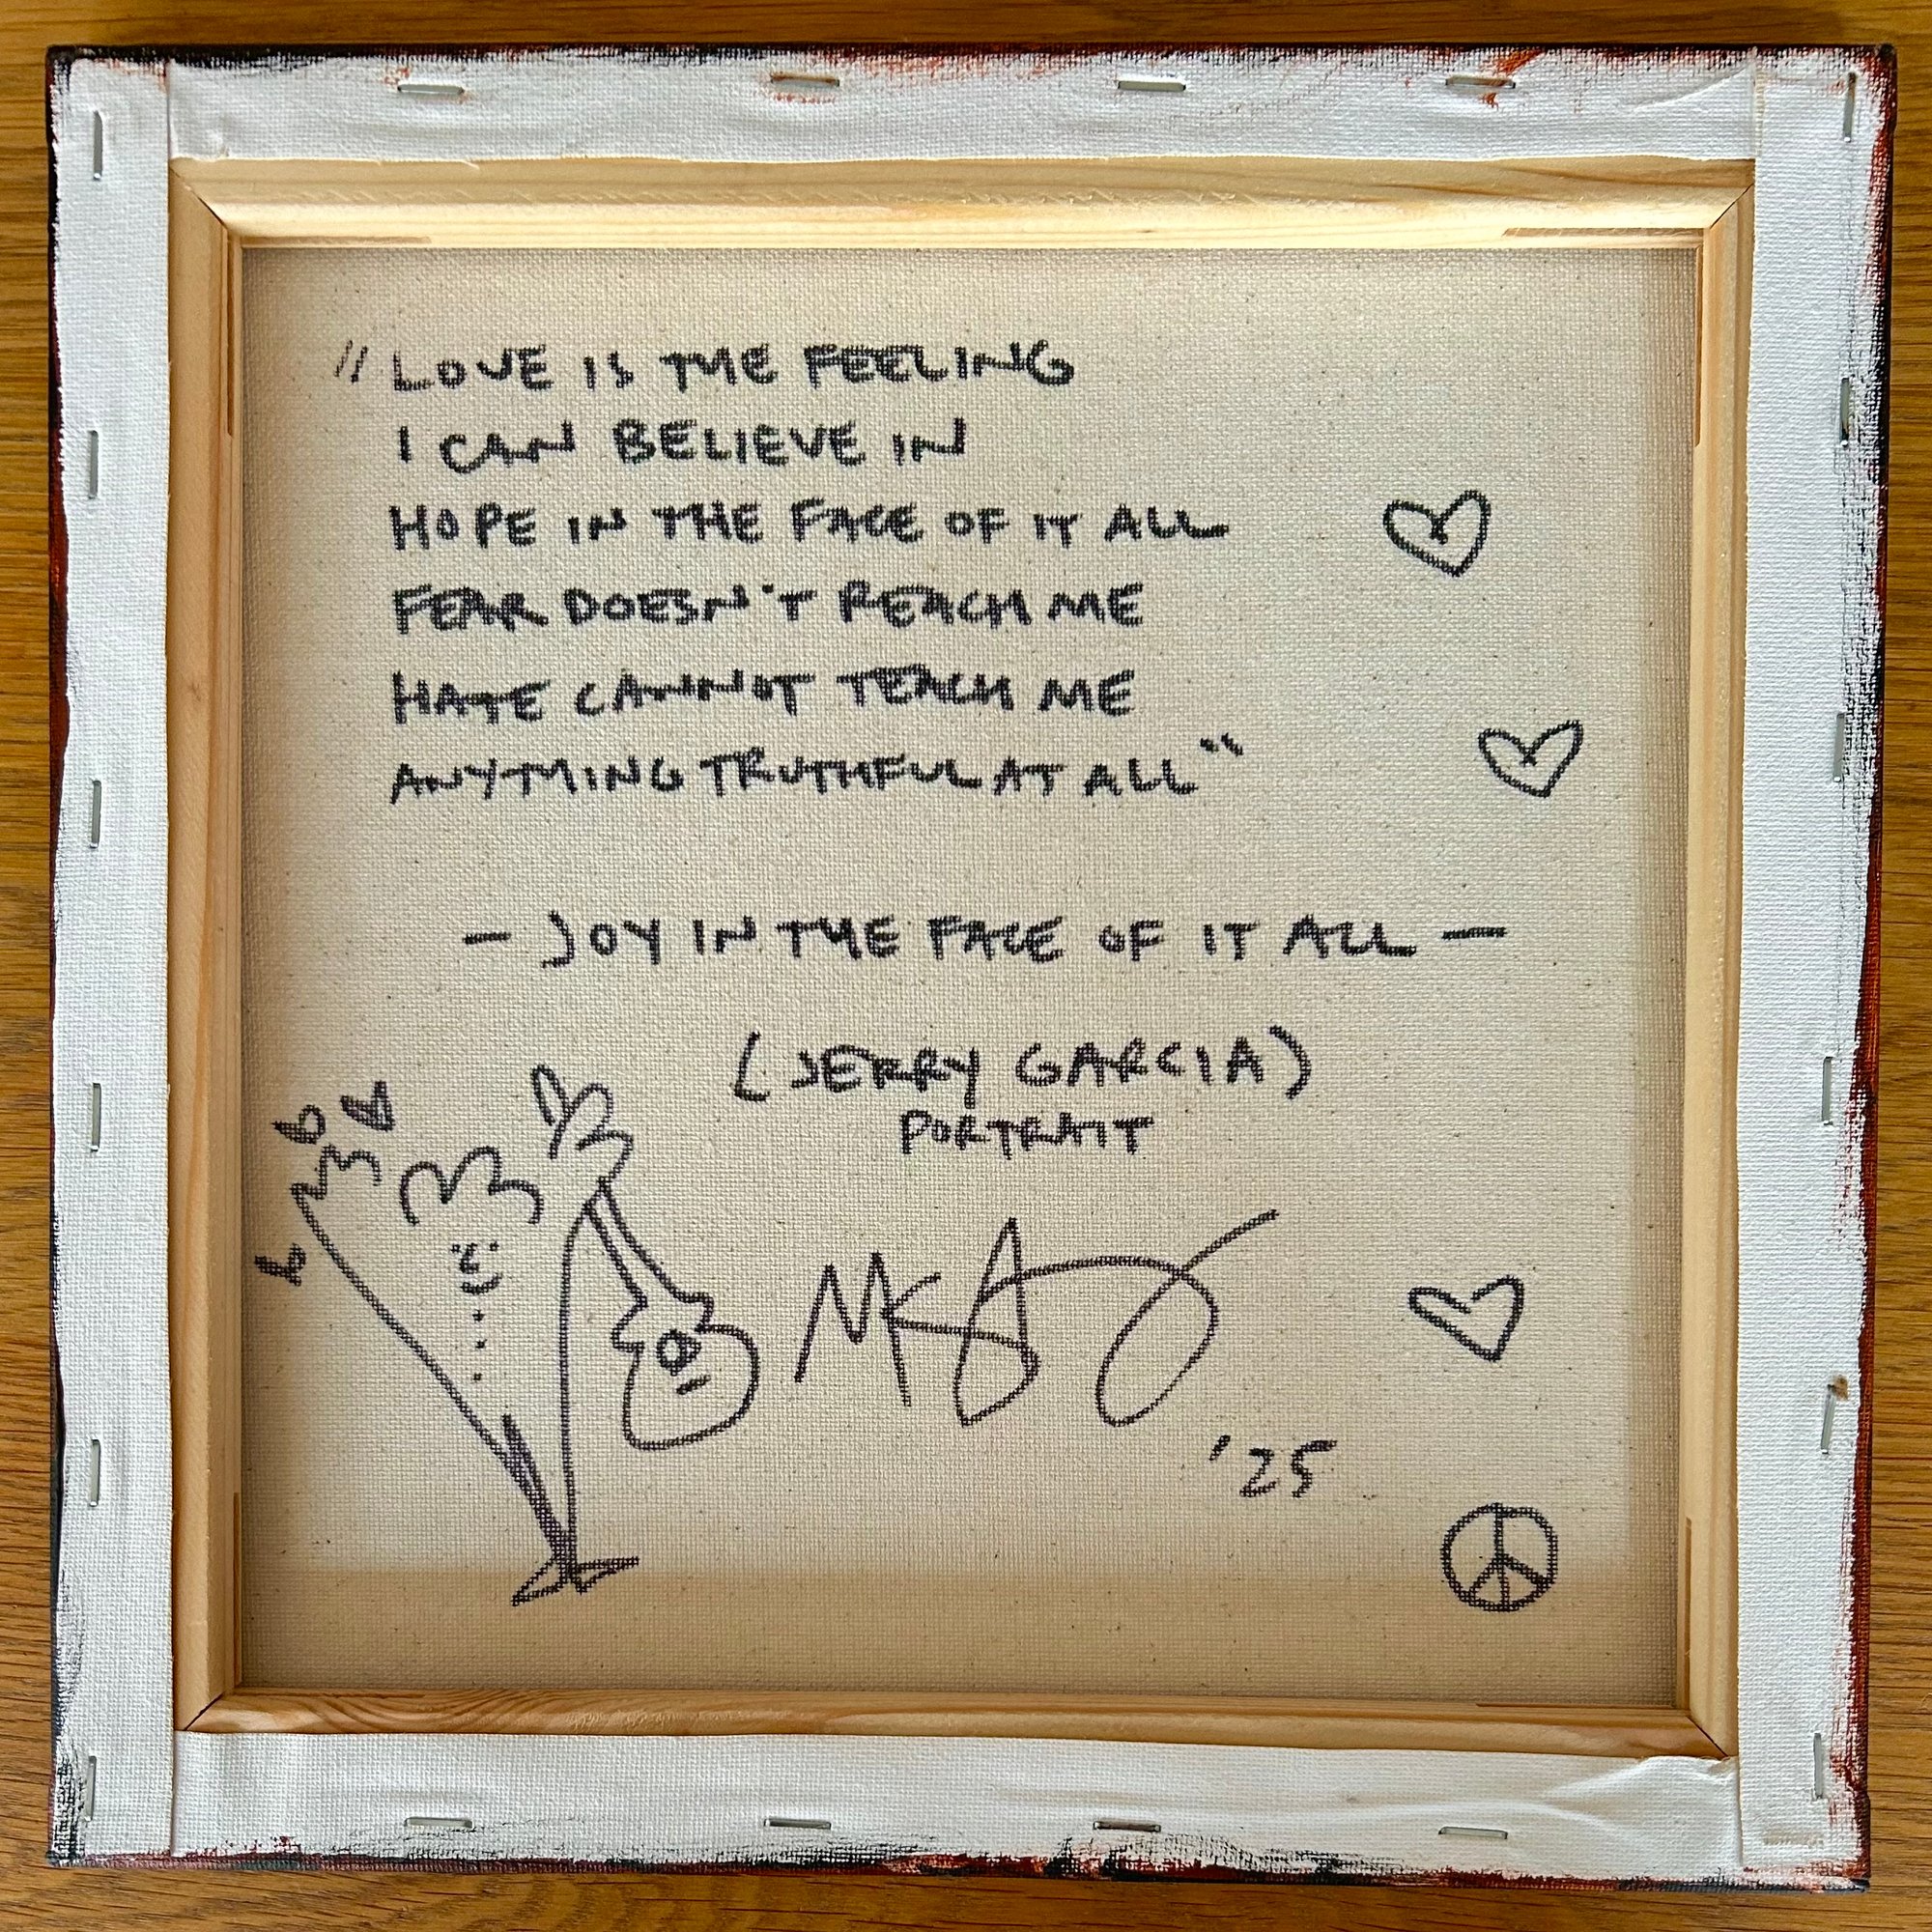 "LOVE IS THE FEELING
I CAN BELIEVE IN
HOPE IN THE FACE OF IT ALL
FEAR DOESN'T REACH ME
HATE CANNOT TEACH ME
ANYTHING TRUTHFUL AT ALL"
- JOY IN THE FACE OF IT ALL -
(JERRY GARCIA)
PORTRAIT
'25